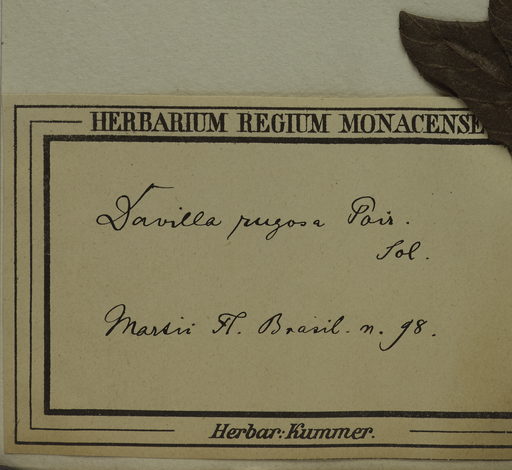 HERBARIUM REGIUM MONACENSE
Davilla rugosa Poir.
Sol.
Martii Fl. Brasil. n. 98.
Herbar: Kummer.